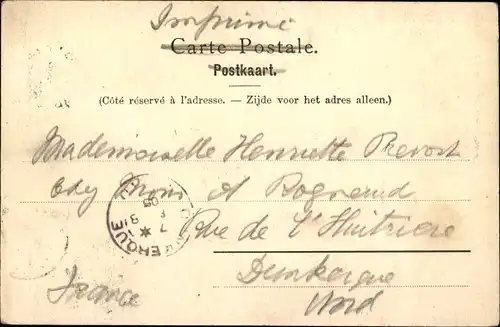 Imprimé
Carte Postale.
Postkaart.
(Côté réservé à l'adresse. — Zijde voor het adres alleen.)
Mademoiselle Henriette Prevost
Rue de l'Huitriere
Dunkerque
France
Nord